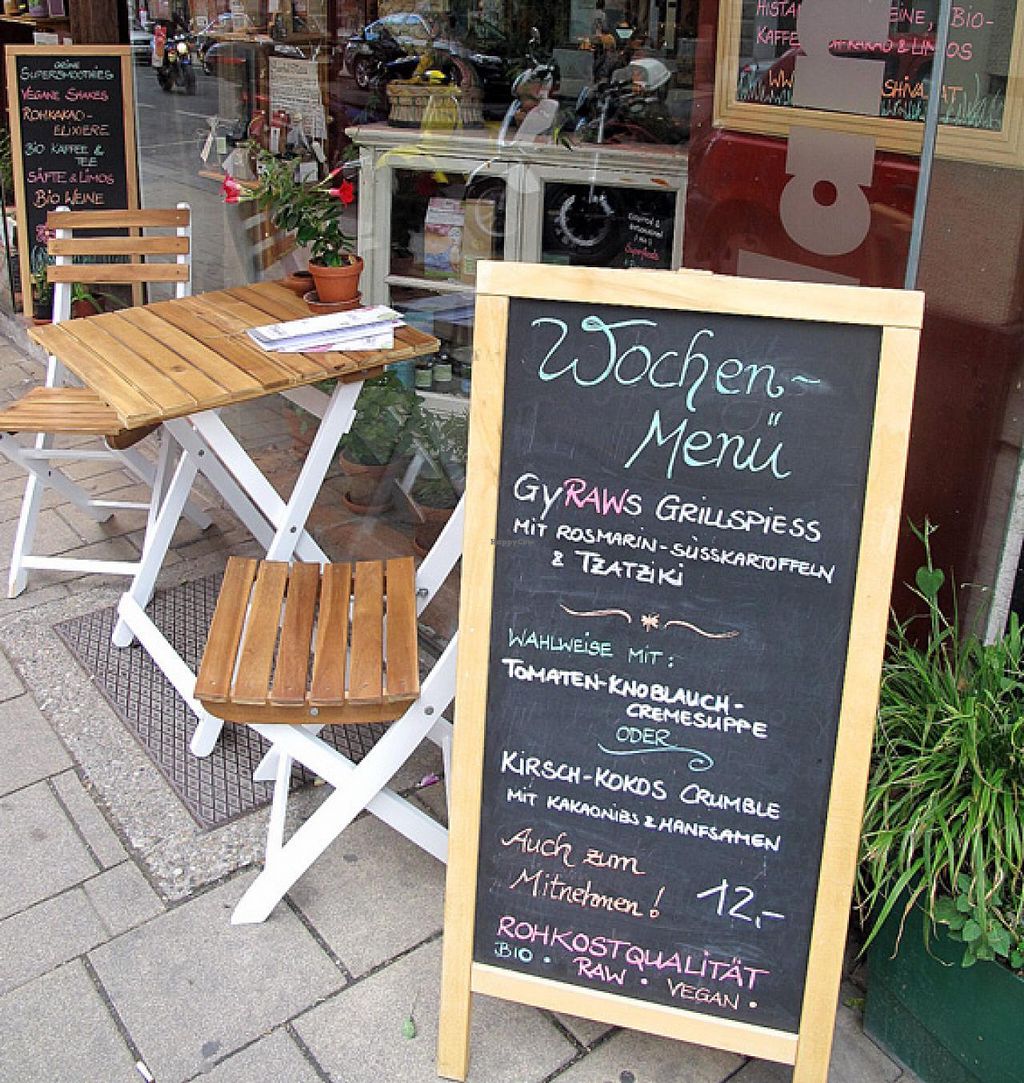 GRÜNE
SUPERSMOOTHIES
VEGANE SHAKES
ROHKAKAO-
ELIXIERE
BIO KAFFEE &
TEE
SÄFTE & LIMOS
BIO WEINE
BIO-
KAFFEE
& LIMOS
Wochen-
Menü
GyRAWs GRILLSPIESS
MIT ROSMARIN-SÜSSKARTOFFELN
& TZATZIKI
WAHLWEISE MIT:
TOMATEN-KNOBLAUCH-
CREMESUPPE
ODER
KIRSCH-KOKOS CRUMBLE
MIT KAKAONIBS & HANFSAMEN
Auch zum
Mitnehmen!
12,-
ROHKOSTQUALITÄT
BIO • RAW • VEGAN •
HappyCow